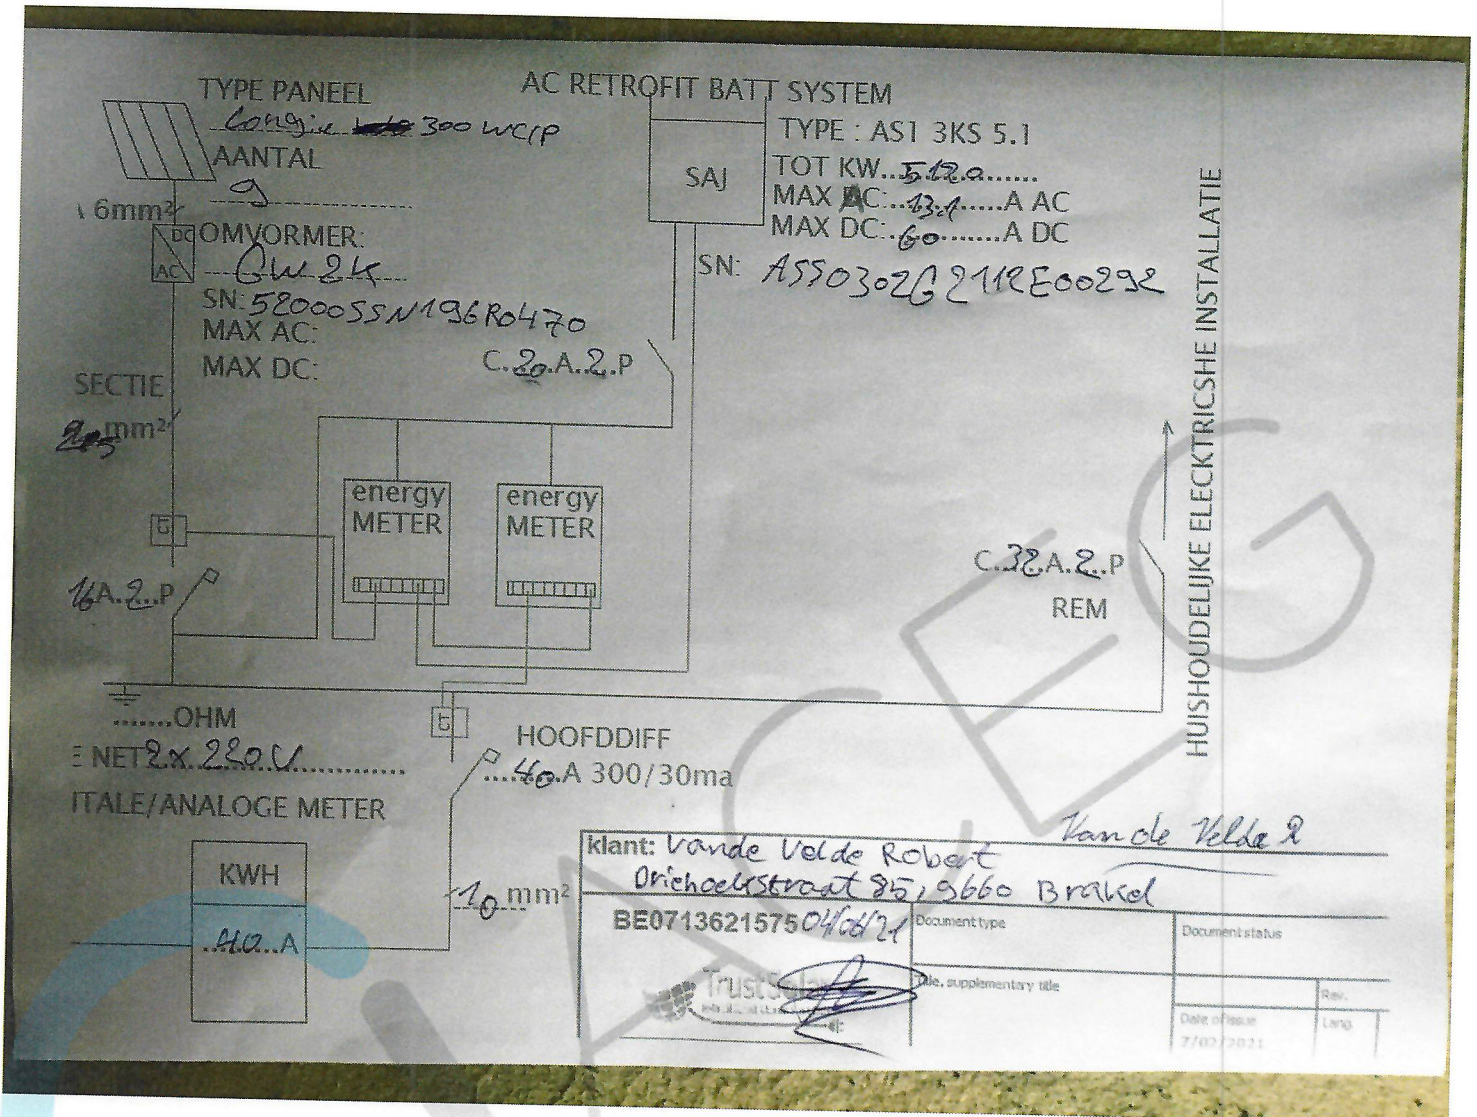 TYPE PANEEL
300 WC/P
AANTAL
9
6mm²
DC
AC
OMVORMER:
GW2K
SN: 52000SSN196R0470
MAX AC:
MAX DC:
SECTIE
2.5 mm²
AC RETROFIT BATT SYSTEM
SAJ
TYPE : AS1 3KS 5.1
TOT KW...5.120.......
MAX AC:..13.1......A AC
MAX DC:..60........A DC
SN: ASS0302G2112E00292
C.20.A.2.P
energy
METER
energy
METER
16A.2..P
C.32.A.2..P
REM
HUISHOUDELIJKE ELECKTRICSHE INSTALLATIE
.......OHM
E NET 2x220V
ITALE/ANALOGE METER
KWH
..40...A
HOOFDDIFF
....40.A 300/30ma
10 mm²
klant: Vande Velde Robert
Van de Velde R
Driehoekstraat 85, 9660 Brakel
BE0713621575 04/06/21
Document type
Document status
TrustSolar
Title, supplementary title
Rev.
Date of issue
7/02/2021
Lang.
ACEG